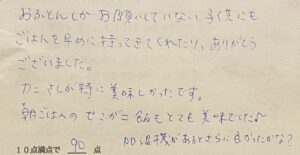 おふとんしか お願いしていない 子供にも
ごはんを早めに持ってきてくれたり、ありがとう
ございました。
カニさしが特に美味しかったです。
朝ごはんの でこがニ飯もとても美味でした♪
加湿機があるとさらに良かったかな?
10点満点で 90 点